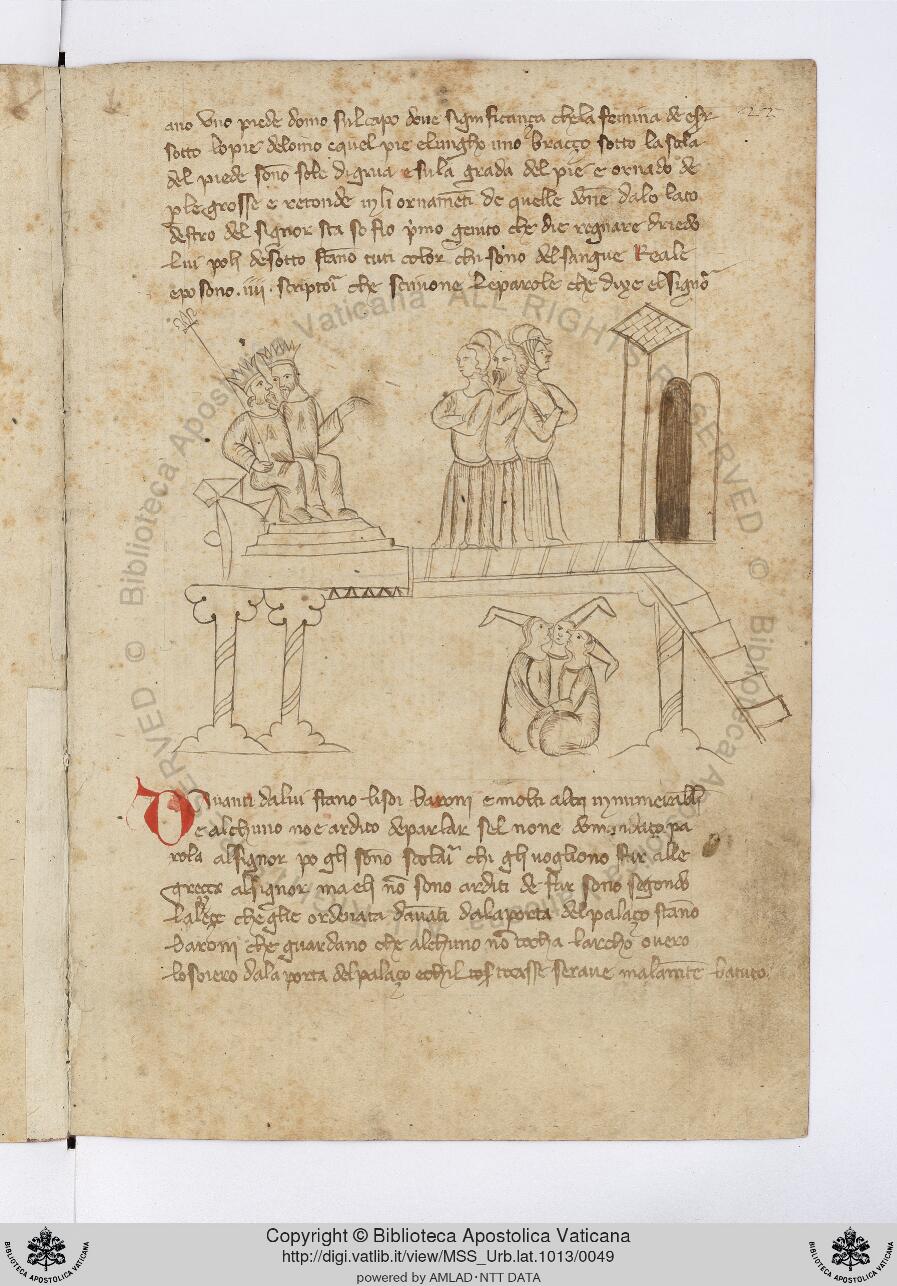 22
ano uno piede domo sul capo dove significança che la femina de esser
sotto lo pie delomo e quel pie e lungho uno braçço sotto la sola
del piede sono sole di grua e sula grada del pie e ornado de
ple grosse e retonde in li ornamēti de quelle done dalo lato
destro del signor sta so fio p̄mo genito che die regnare driedo
lui poh desotto stano tuti color chi sono del sangue Reale
epo sono .iiii. scriptori che scrivone le parole che dixe el signor
Davanti da lui stano li soi baroni e molti altri innumerabili
e alchuno no e ardito de parlar sel none domandaço pa
rola al signor po gli sono scolari chi gli vogliono star alle
greççe al signor ma eli nō sono arditi de star sono segondo
la leçe che glie ordenata davāti dala porta del palaço stano
baroni che guardano che alchuno nō tocha larcho overo
lo soiero dala porta del palaço e chil tocasse serave malamēte batuto
© Biblioteca Apostolica Vaticana ALL RIGHTS RESERVED © Biblioteca Apostolica Vaticana ALL RIGHTS RESERVED
Copyright © Biblioteca Apostolica Vaticana
http://digi.vatlib.it/view/MSS_Urb.lat.1013/0049
powered by AMLAD·NTT DATA
BIBLIOTECA APOSTOLICA VATICANA
BIBLIOTECA APOSTOLICA VATICANA